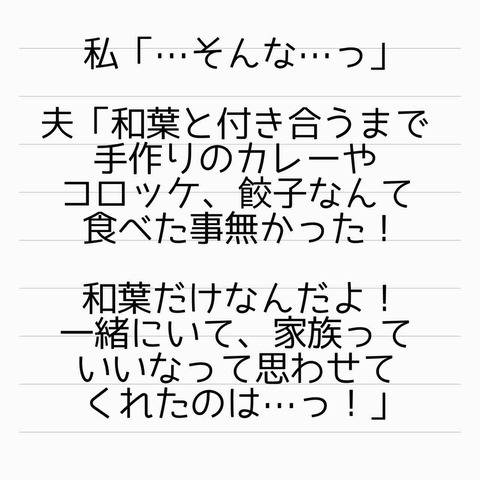 私「…そんな…っ」
夫「和葉と付き合うまで
手作りのカレーや
コロッケ、餃子なんて
食べた事無かった！
和葉だけなんだよ！
一緒にいて、家族って
いいなって思わせて
くれたのは…っ！」